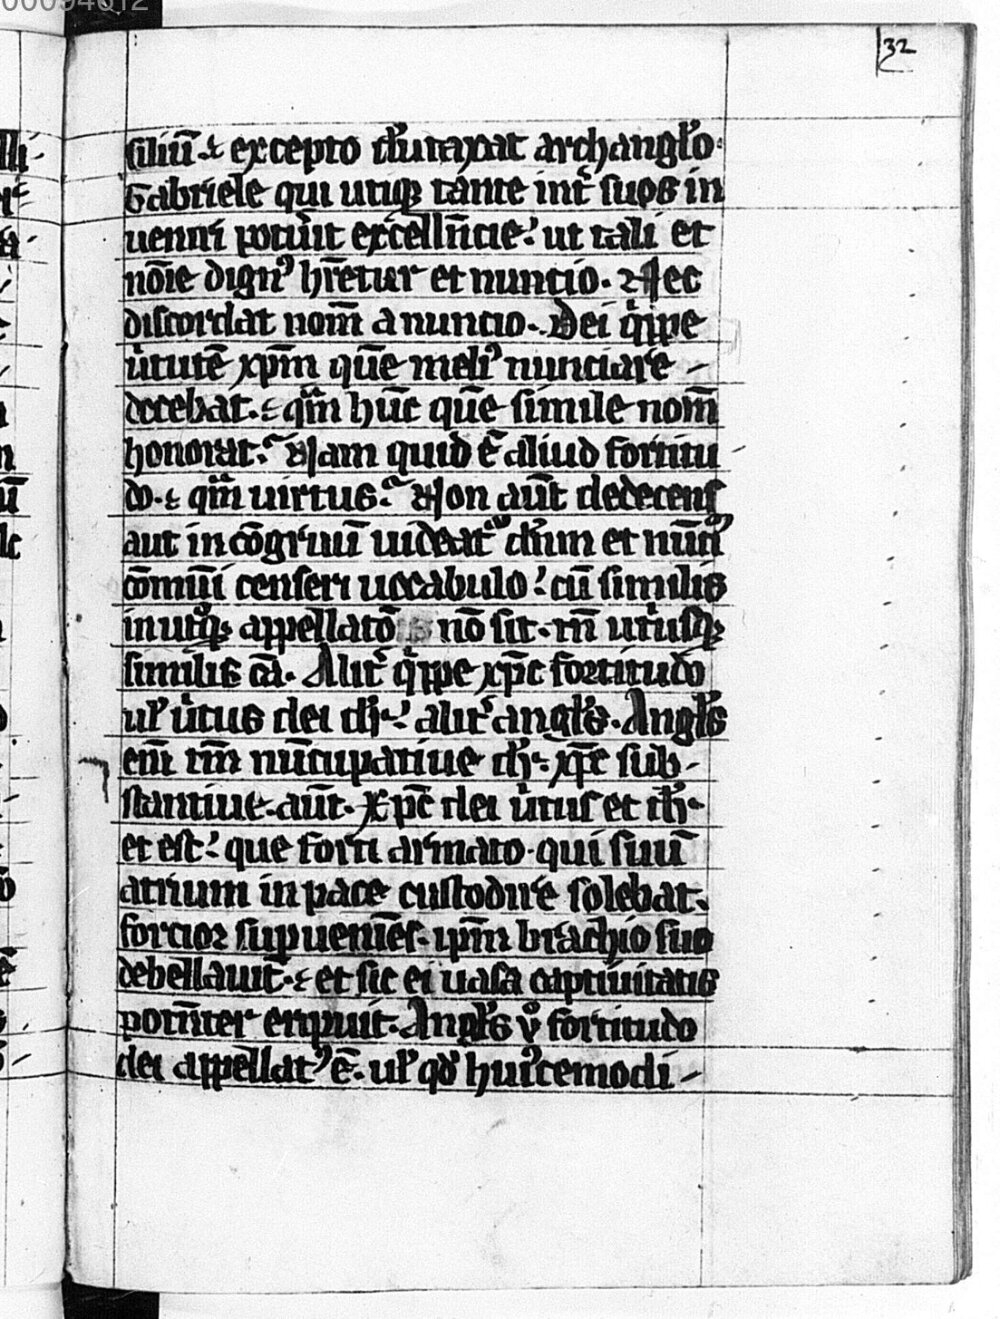 00094612
32
siliū ⁊ excepto dūtaxat archanglo·
Gabriele qui utiq; tante int̄ suos in
ueniri potuit excelln̄tie· ut tali et
noīe dign⁹ hr̄etur et nuncio. Nec
discordat nom̄ a nuncio. Dei qͥppe
uͥtutē xpm̄ quē meli⁹ nunciare
decebat· qͣm hūc quē simile nom̄
honorat. Nam quid ē aliud fortitu
do· qͣm uirtus. Non aūt dedecens
aut incōgruū uideatͬ dn̄m et nūciū
cōmuni censeri uocabulo· cū similis
in utͦq; appellatōis nō sit· tn̄ utͥusq;
similis cā. Alit̄ qͥppe xpc̄ fortitudo
ul̄ uͥtus dei dr̄· alit̄ angls̄. Angls̄
eni tm̄ nūcupatiue dr̄· xpc̄ sub
stantiue aūt· xpc̄ dei uͥtus et dr̄
et est· que forti armato· qui suū
atrium in pace custodire solebat·
fortior supueniēs· ipm̄ brachio suo
debellauit· et sic ei uasa captiuitatis
potn̄ter eripuit. Angls̄ uͦ fortitudo
dei appellat⁹ ē· ul̄ qd̄ hui⁹cemodi